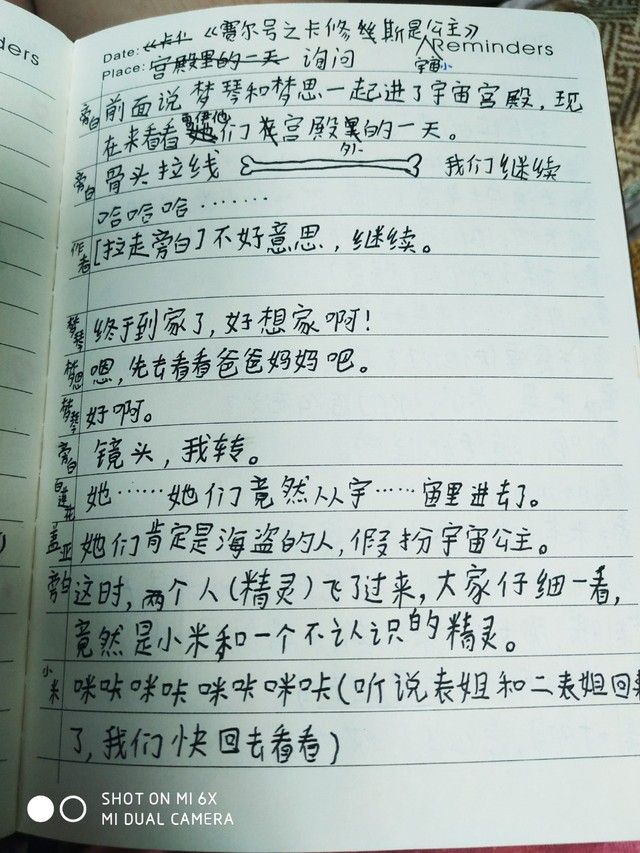 ders
Date: 《卡1 《赛尔号之卡修丝斯是公主》
宇宙小
Reminders
Place: 宫殿里的一天 询问
旁白 前面说 梦琴和梦思一起进了宇宙宫殿，现
在来看看她们在宫殿里的一天。
外
旁白 骨头拉线 我们继续
哈哈哈·······
作者 [拉走旁白]不好意思，继续。
梦琴 终于到家了，好想家啊！
梦思 嗯，先去看看爸爸妈妈吧。
梦琴 好啊。
旁白 镜头，我转。
白莲花 她……她们竟然从宇……宙里进去了。
盖亚 她们肯定是海盗的人，假扮宇宙公主。
旁白 这时，两个人（精灵）飞了过来，大家仔细一看，
竟然是小米和一个不认识的精灵。
小米 咪咔咪咔 咪咔咪咔（听说表姐和二表姐回来
了，我们快回去看看）
SHOT ON MI 6X
MI DUAL CAMERA